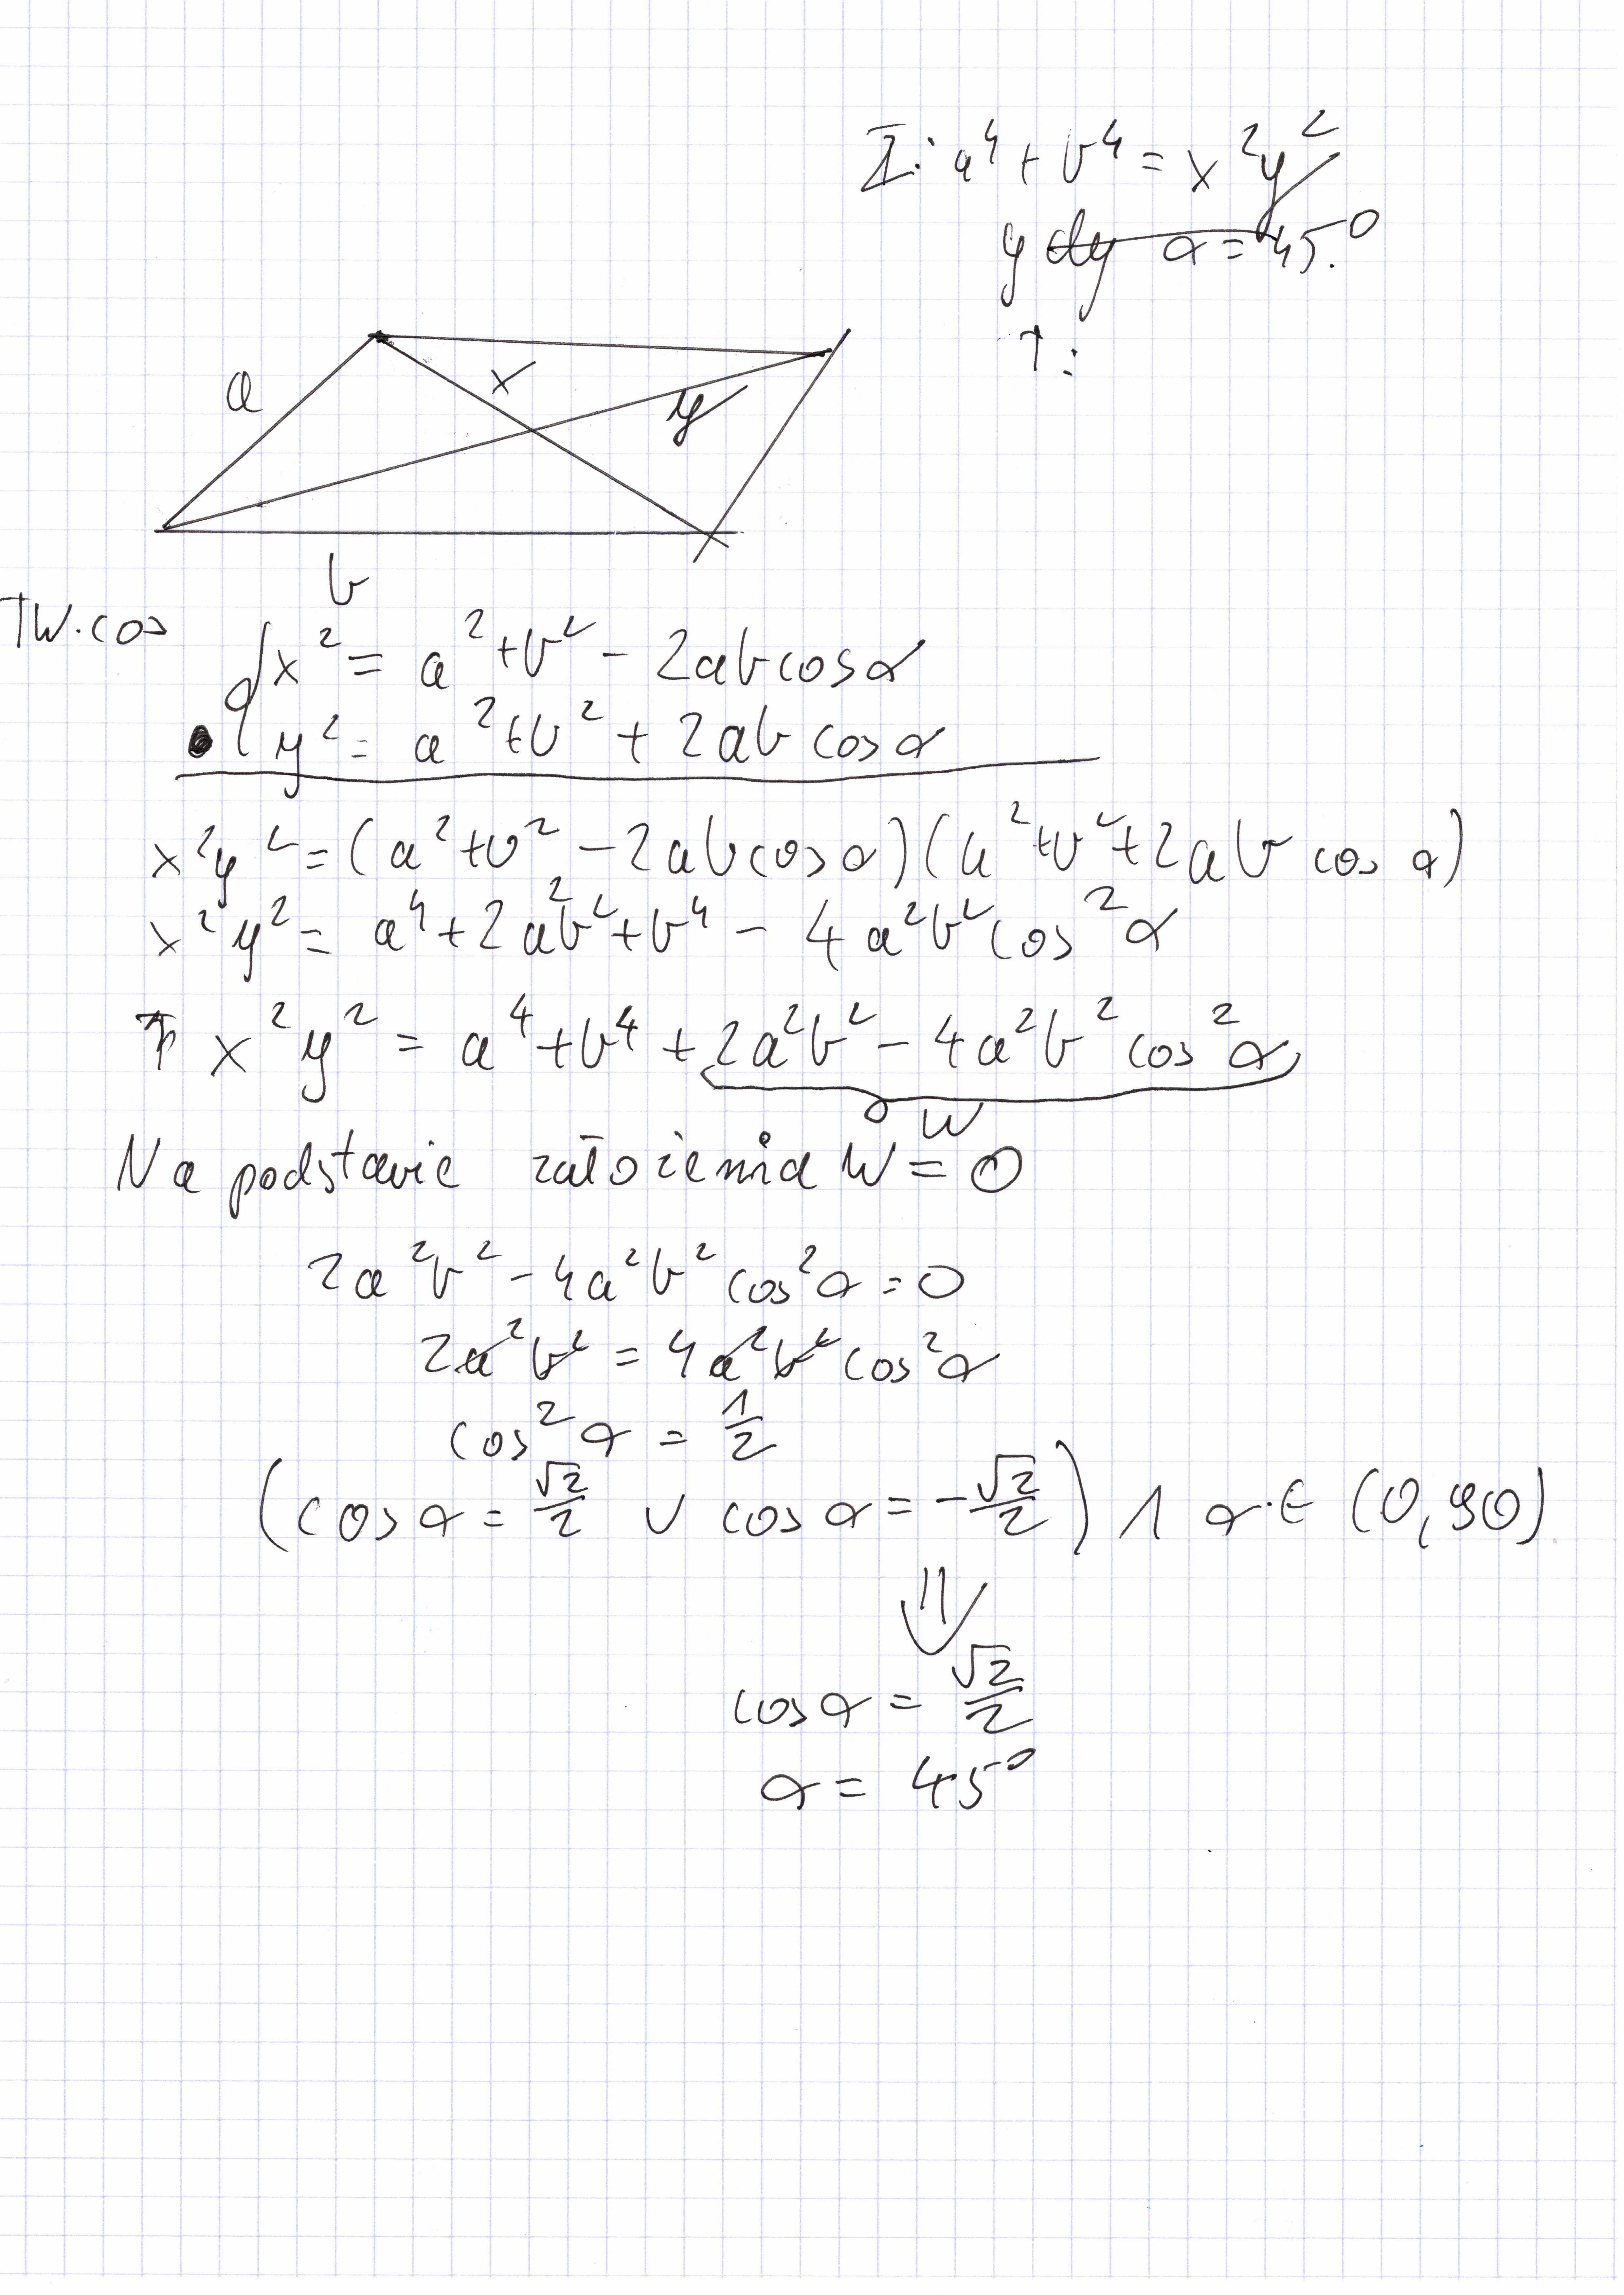 Z: a⁴ + b⁴ = x²y²
gdy α = 45.⁰
T:
a
x
y
b
TW. cos
x² = a² + b² - 2ab cos α
y² = a² + b² + 2ab cos α
x²y² = (a² + b² - 2ab cos α)(a² + b² + 2ab cos α)
x²y² = a⁴ + 2a²b² + b⁴ - 4a²b² cos²α
x²y² = a⁴ + b⁴ + 2a²b² - 4a²b² cos²α
W
Na podstawie założenia W = 0
2a²b² - 4a²b² cos²α = 0
2a²b² = 4a²b² cos²α
cos²α = 1/2
(cos α = √2/2 ∨ cos α = -√2/2) ∧ α ∈ (0, 90)
⇓
cos α = √2/2
α = 45⁰